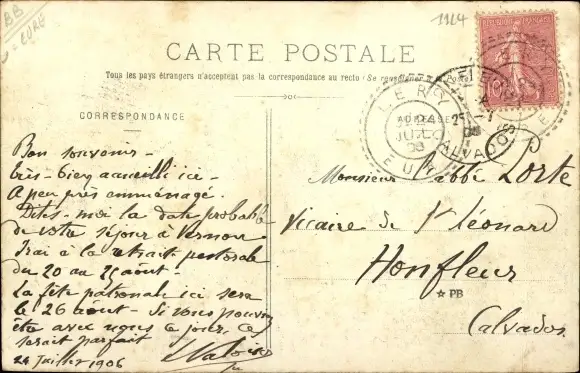 BB
EURE
1904
CARTE POSTALE
Tous les pays étrangers n'acceptent pas la correspondance au recto (Se renseigner à la Poste)
CORRESPONDANCE
ADRESSE
LERY
24
JUIL
06
EURE
25
06
CALVADOS
Bon souvenir -
très-bien accueilli ici -
A peu près emménagé.
Dites-moi la date probable
de votre séjour à Vernon
J'irai à la retraite pastorale
du 20 au août -
La fête patronale ici sera
le 26 août - Si vous pouvez
être avec nous ce jour, ce
serait parfait
24 Juillet 1906
Monsieur l'abbé Porte
Vicaire de St Léonard
Honfleur
☆ PB
Calvados